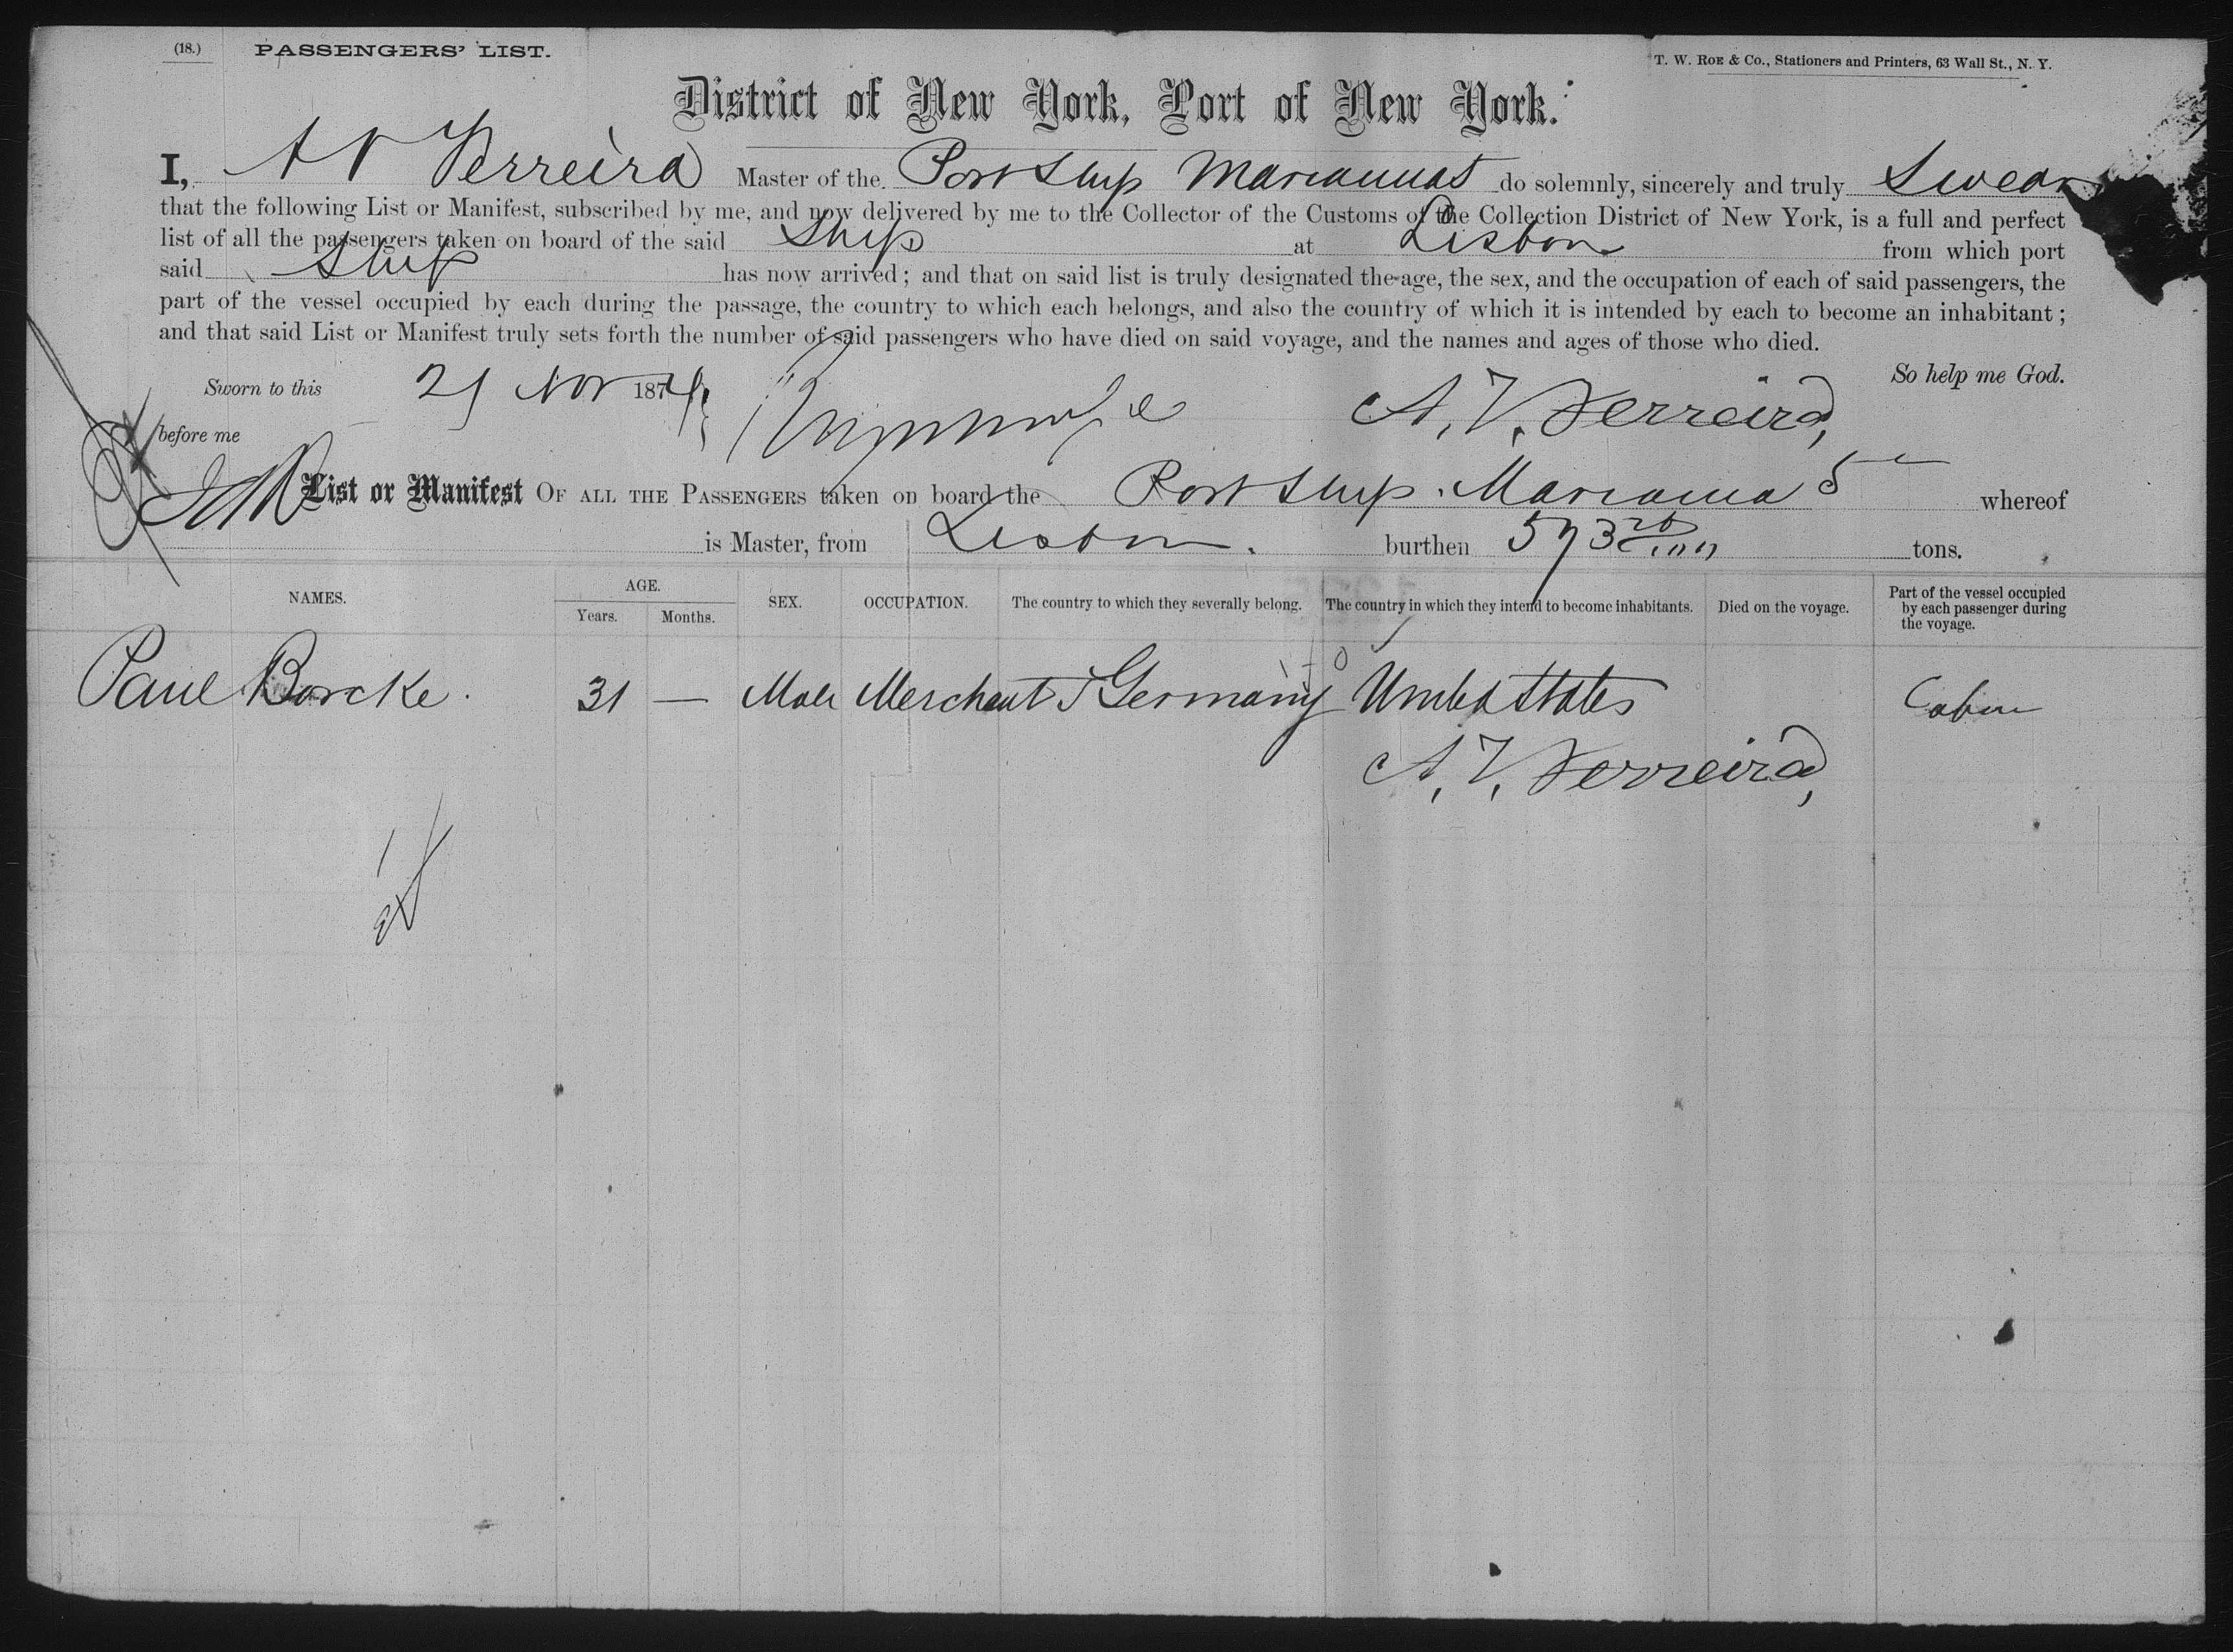 (18.) PASSENGERS' LIST. T. W. ROE & Co., Stationers and Printers, 63 Wall St., N. Y.
District of New York, Port of New York.
I, A V Ferreira Master of the Port Ship do solemnly, sincerely and truly Swear
that the following List or Manifest, subscribed by me, and now delivered by me to the Collector of the Customs of the Collection District of New York, is a full and perfect
list of all the passengers taken on board of the said Ship at Lisbon from which port
said Ship has now arrived; and that on said list is truly designated the age, the sex, and the occupation of each of said passengers, the
part of the vessel occupied by each during the passage, the country to which each belongs, and also the country of which it is intended by each to become an inhabitant;
and that said List or Manifest truly sets forth the number of said passengers who have died on said voyage, and the names and ages of those who died.
So help me God.
Sworn to this Nov 187
A. V. Ferreira,
before me
List or Manifest OF ALL THE PASSENGERS taken on board the Port Ship whereof
is Master, from Lisbon. burthen 573 tons.
NAMES. AGE. Years. Months. SEX. OCCUPATION. The country to which they severally belong. The country in which they intend to become inhabitants. Died on the voyage. Part of the vessel occupied by each passenger during the voyage.
Paul Borcke. 31 — Male Merchant Germany United States Cabin
A. V. Ferreira,